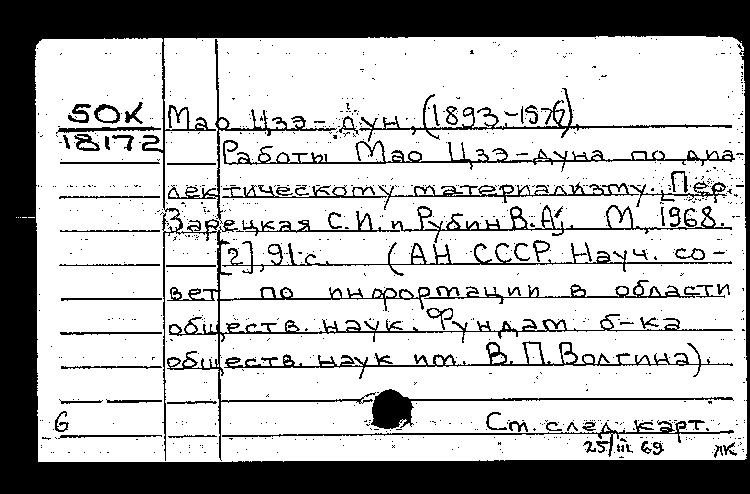 50К
18172
Мао Цзэ-дун, (1893-1976).
Работы Мао Цзэ-дуна по диа-
лектическому материализму. [Пер.-
Зарецкая С.И. и Рубин В.А.]. М., 1968.
[2], 91 с. (АН СССР. Науч. со-
вет по информации в области
обществ. наук. Фундам. б-ка
обществ. наук им. В.П.Волгина).
6
См. след. карт.
25/III 69
ЛК